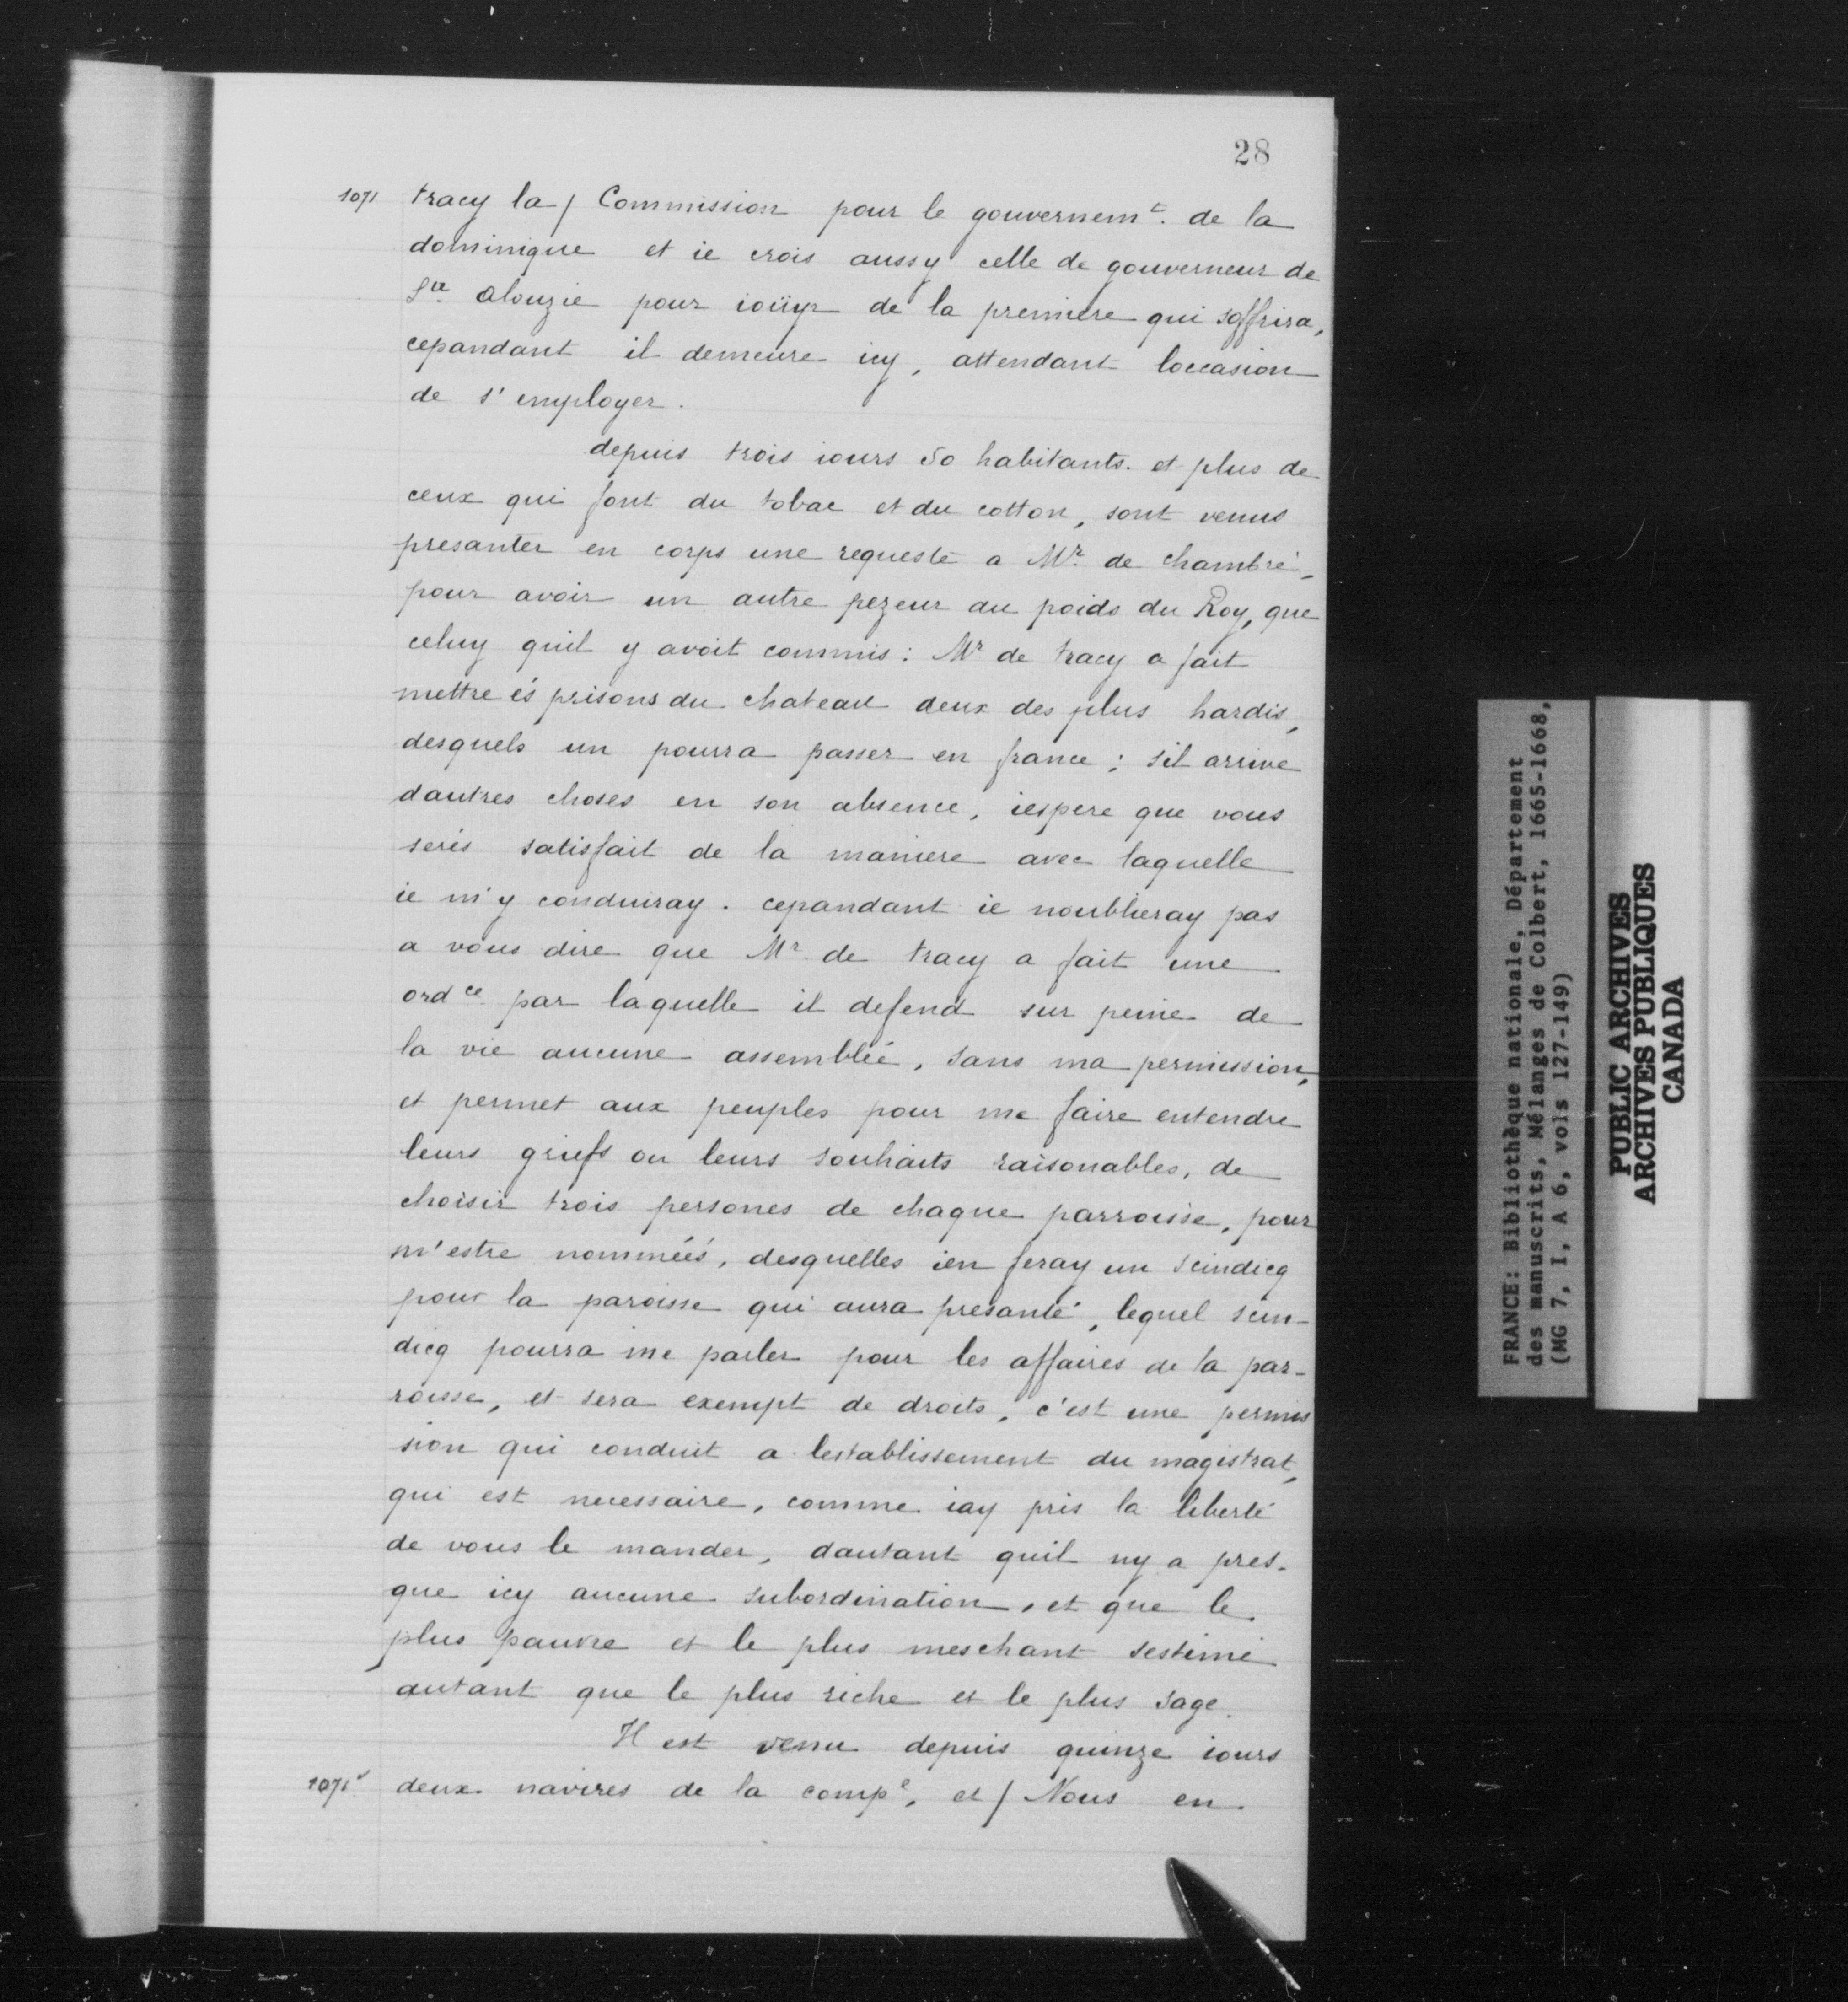 28
1071 tracy la / Commission pour le gouvernemt. de la
dominique et ie crois aussy celle de gouverneur de
Ste alouzie pour ioüyr de la premiere qui soffrira,
cepandant il demeure icy, attendant loccasion
de s'employer.
depuis trois iours 50 habitants. et plus de
ceux qui font du tobac et du cotton, sont venus
presanter en corps une requeste a Mr. de chambré,
pour avoir un autre pezeur au poids du Roy, que
celuy quil y avoit commis: Mr de tracy a fait
mettre és prisons du chateau deux des plus hardis,
desquels un pourra passer en france; sil arrive
dautres choses en son absence, iespere que vous
serés satisfait de la maniere avec laquelle
ie m'y conduiray. cepandant ie noublieray pas
a vous dire que Mr de tracy a fait une
ordce par laquelle il defend sur peine de
la vie aucune assemblée, sans ma permission,
et permet aux peuples pour me faire entendre
leurs griefs ou leurs souhaits raisonables, de
choisir trois persones de chaque parroisse, pour
m'estre nommées, desquelles ien feray un scindicq
pour la paroisse qui aura presanté, lequel scin-
dicq pourra me parler pour les affaires de la par-
roisse, et sera exempt de droits, c'est une permis
sion qui conduit a lestablissement du magistrat,
qui est necessaire, comme iay pris la liberté
de vous le mander, dautant quil ny a pres-
que icy aucune subordination, et que le
plus pauvre et le plus meschant sestime
autant que le plus riche et le plus sage.
Il est venu depuis quinze iours
1071v deux navires de la compe, et / Nous en
FRANCE: Bibliothèque nationale, Département
des manuscrits, Mélanges de Colbert, 1665-1668,
(MG 7, I, A 6, vols 127-149)
PUBLIC ARCHIVES
ARCHIVES PUBLIQUES
CANADA